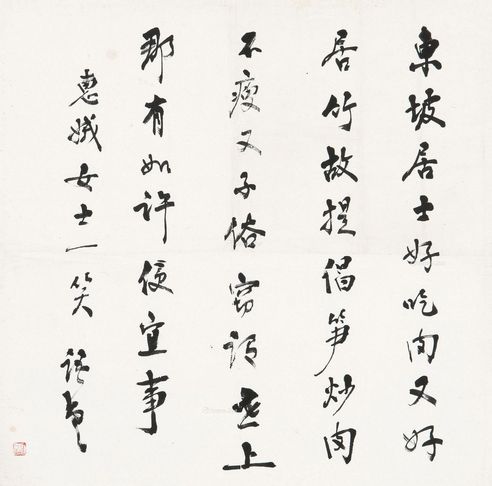 東坡居士好吃肉又好
居竹故提倡笋炒肉
不瘦又不俗窃謂世上
那有如許便宜事
惠娥女士一笑 語堂